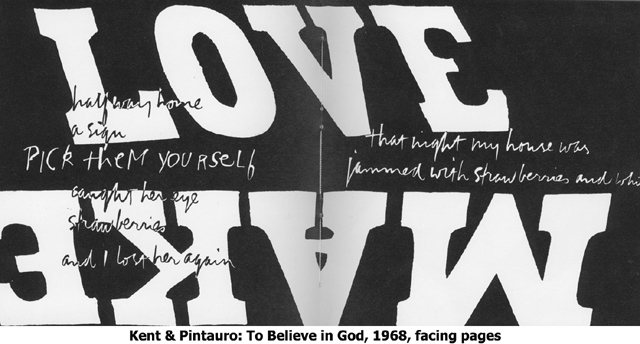 LOVE
half way home
a sign
PICK theM YOURSELF
caught her eye
strawberries
and I lost her again
that night my house was
jammed with strawberries and whi
MAKE
Kent & Pintauro: To Believe in God, 1968, facing pages